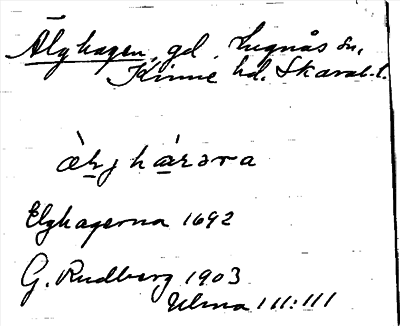 Älghagen, gd. Lugnås sn,
Kinne hd. Skarab.l.
Elghagerna 1692
G. Rudberg 1903
Ulma 111:111